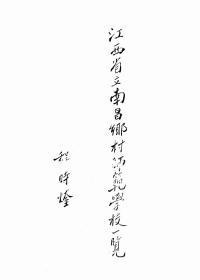 江西省立南昌鄉村師範學校一覽
程時煃